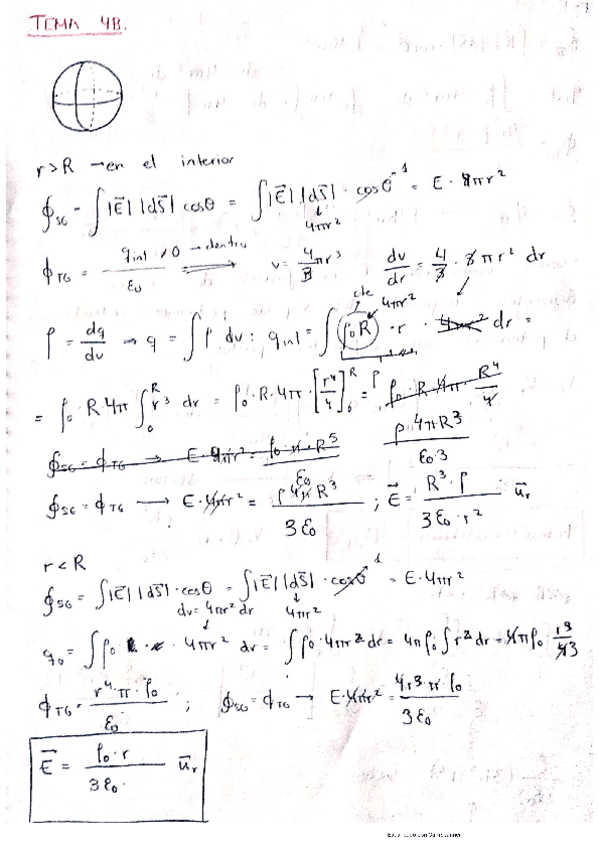 TEMA 4B.
r > R → en el interior
ϕ_SG = ∫|E⃗| |dS⃗| cosθ = ∫|E⃗| |dS⃗| · cosθ^1 = E · 4πr²
↓
4πr²
ϕ_TG = q_int ≠ 0 / ε₀ → dentro ⟹ v = 4/3 πr³ dv/dr = 4/3 · 3 π r² dr
cte 4πr²
ρ = dq/dv → q = ∫ρ dv : q_int = ∫ ρ₀R · r · 4πr² dr =
= ρ₀ · R 4π ∫₀^R r³ dr = ρ₀ · R · 4π · [r⁴/4]₀^R = ρ₀ · R · 4π · R⁴/4
ϕ_SG = ϕ_TG → E · 4πr² = ρ₀ · π · R⁵ / ε₀ ρ · 4πR³ / ε₀ 3
ϕ_SG = ϕ_TG → E · 4πr² = ρ 4π R³ / 3 ε₀ ; E⃗ = R³ · ρ / 3 ε₀ · r² u⃗_r
r < R
ϕ_SG = ∫|E⃗| |dS⃗| · cosθ = ∫|E⃗| |dS⃗| · cosθ^1 = E · 4πr²
dv = 4πr² dr ↓ 4πr²
q₀ = ∫ρ₀ · 4πr² dr = ∫ρ₀ · 4πr² dr = 4πρ₀ ∫r² dr = 4πρ₀ · r³/3
ϕ_TG = r⁴ · π · ρ₀ / ε₀ ; ϕ_SG = ϕ_TG → E · 4πr² = 4r³ · π · ρ₀ / 3 ε₀
E⃗ = ρ₀ · r / 3 ε₀ · u⃗_r